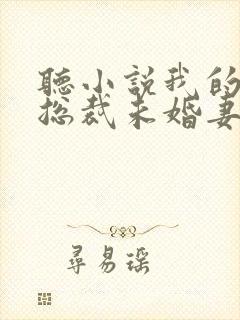 聽小說我的
總裁未婚妻
尋易瑤